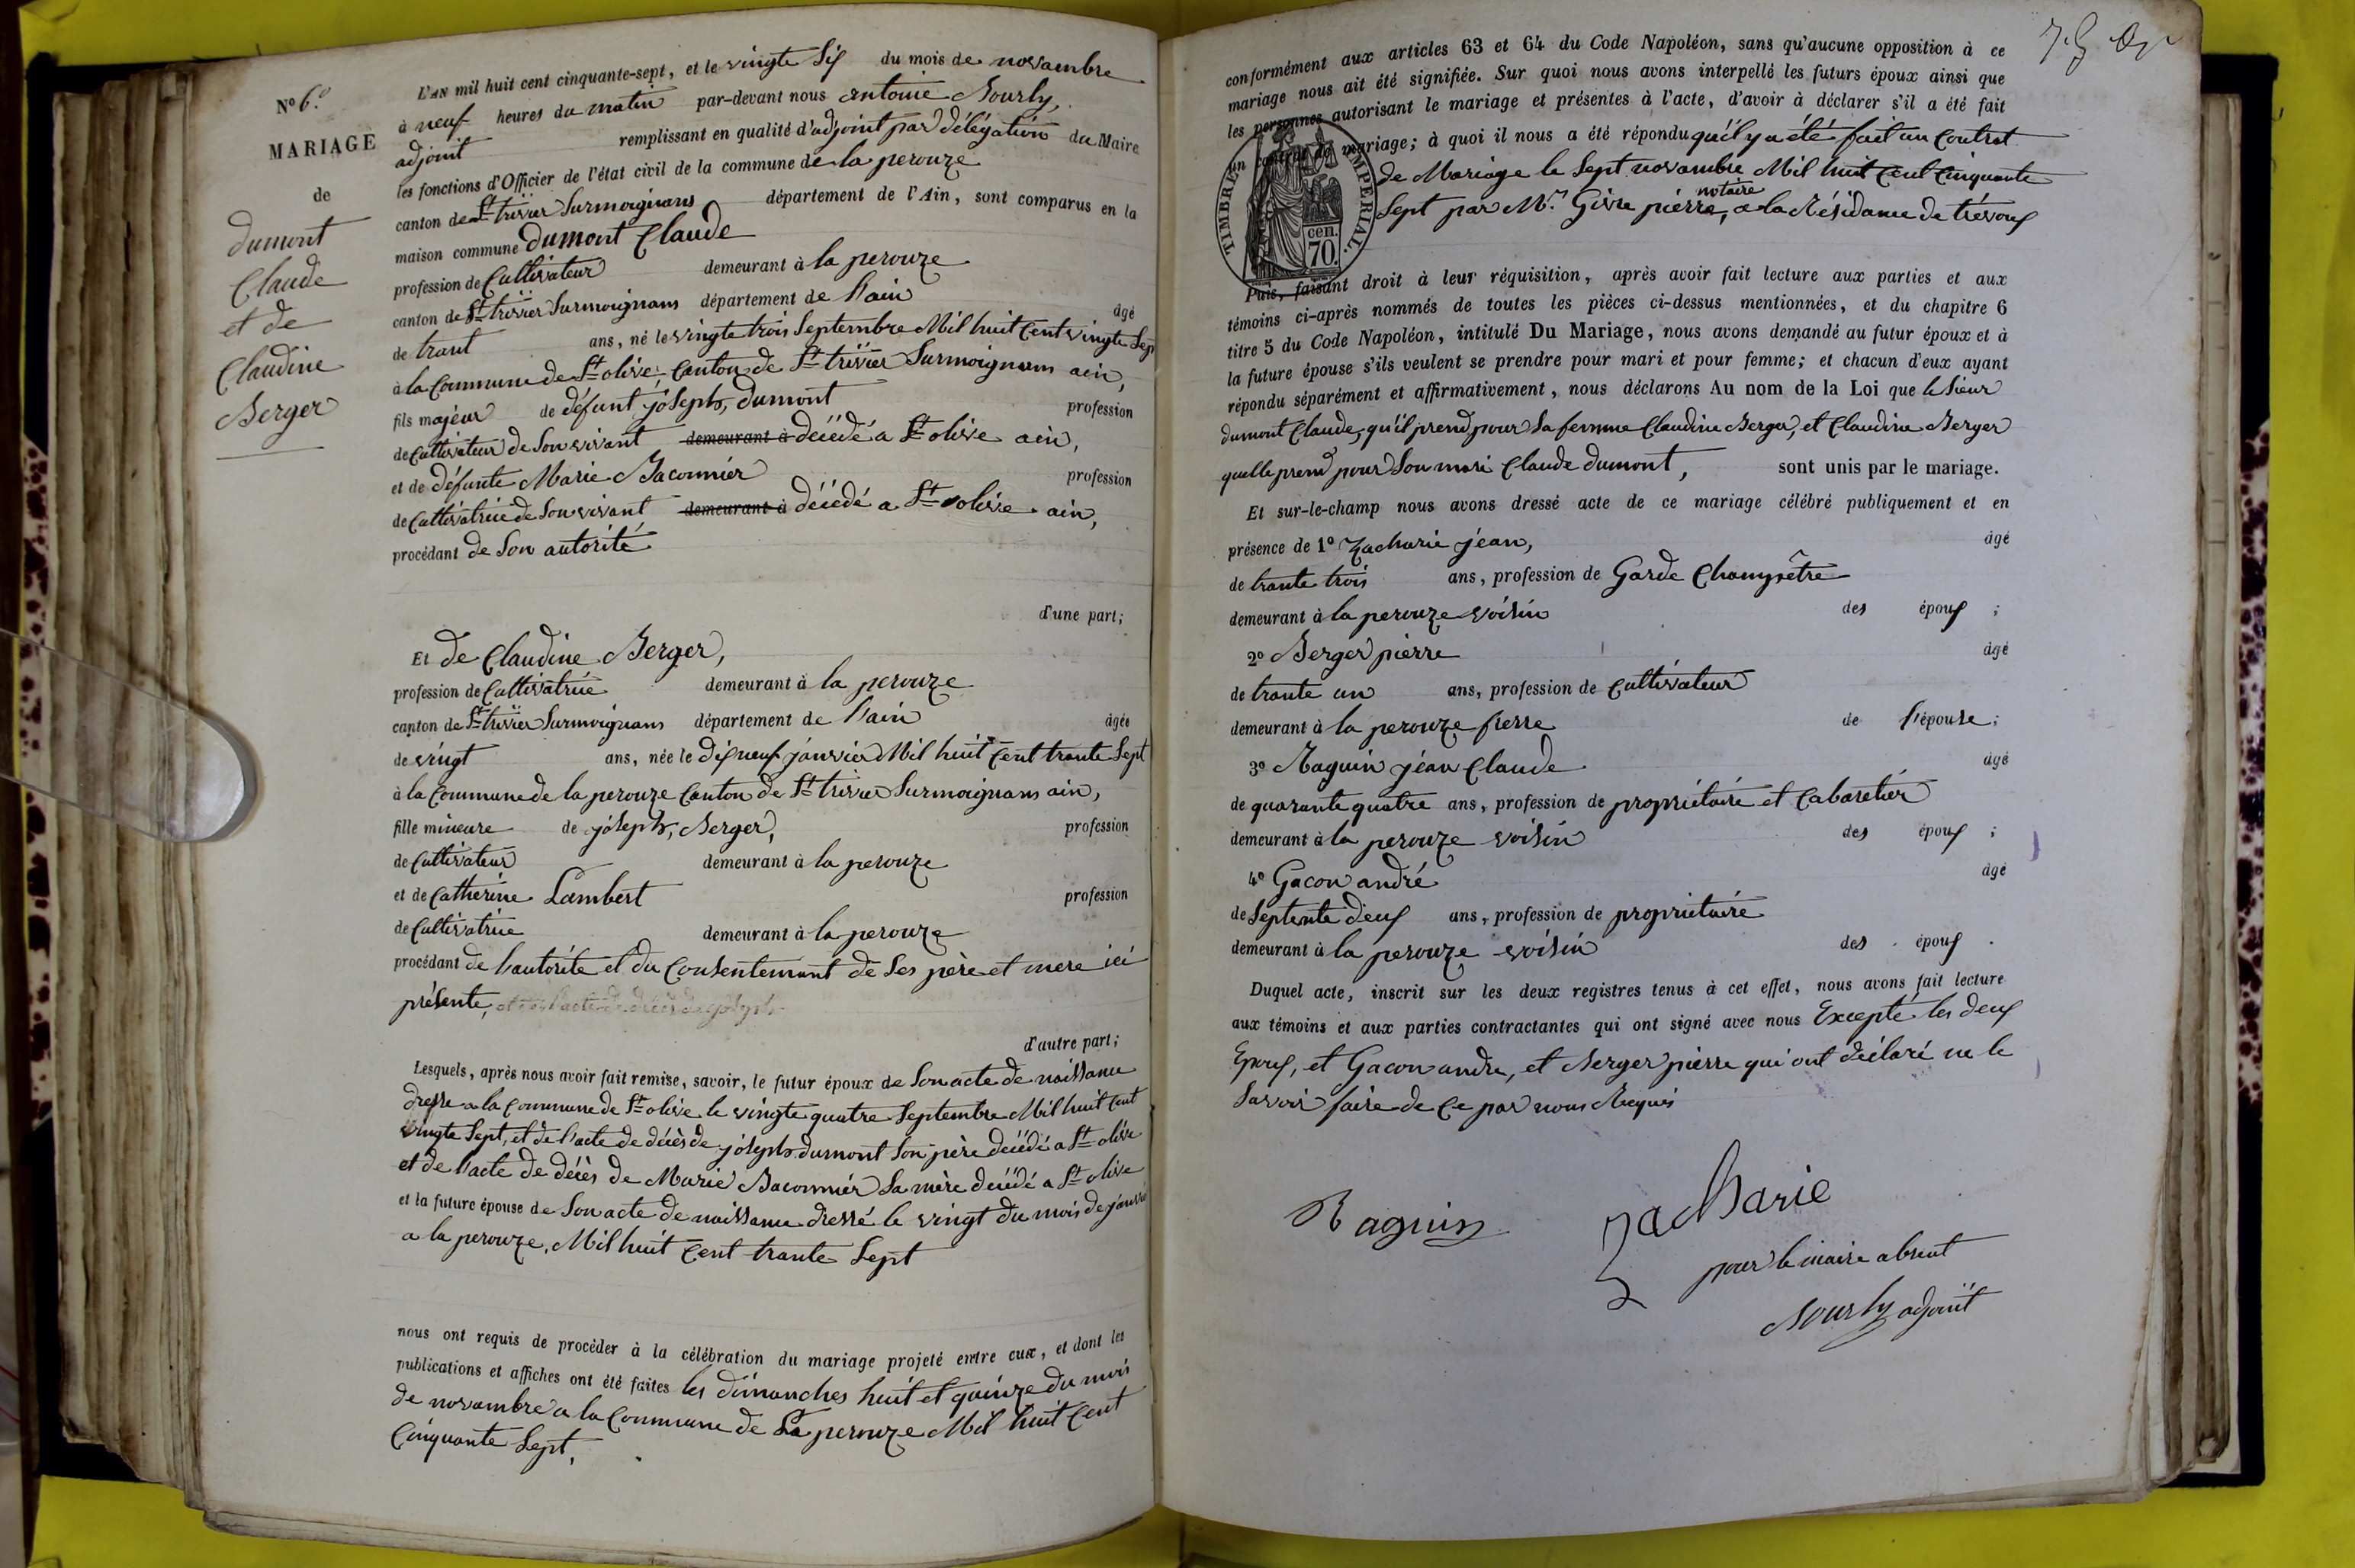 N° 6.e
MARIAGE
de
dumont
Claude
et de
Claudine
Berger
L'AN mil huit cent cinquante-sept, et le vingte Six du mois de novambre
à neuf heures du matin par-devant nous antoine Bourly,
adjoint remplissant en qualité d'adjoint par délégation du Maire
les fonctions d'Officier de l'état civil de la commune de la perouze
canton de St trivier Surmoignans département de l'Ain, sont comparus en la
maison commune dumont Claude
profession de Cultivateur demeurant à la perouze
canton de St trivier Surmoignans département de l'ain âgé
de trant ans, né le vingte trois Septembre Mil huit Cent vingte Sep
à la Commune de St olive, Canton de St trivier Surmoignans ain,
fils majeur de défunt joseph, dumont profession
de Cultivateur de Son vivant demeurant à décédé a St olive ain,
et de défunte Marie Baconnier profession
de Cultivatrice de Son vivant demeurant à décédé a St olive ain,
procédant de Son autorité
d'une part;
Et de Claudine Berger,
profession de Cultivatrice demeurant à la perouze
canton de St trivier Surmoignans département de l'ain âgée
de vingt ans, née le dix neuf janvier Mil huit Cent trante Sept
à la Commune de la perouze Canton de St trivier Surmoignans ain,
fille mineure de joseph, Berger, profession
de Cultivateur demeurant à la perouze
et de Catherine Lambert profession
de Cultivatrice demeurant à la perouze
procédant de l'autorité et du Consentemant de Ses père et mere ici
présente,
d'autre part;
Lesquels, après nous avoir fait remise, savoir, le futur époux de Son acte de naissance
dresse a la Commune de St olive le vingte quatre Septembre Mil huit Cent
vingte Sept, et de l'acte de décès de joseph dumont Son père décédé a St olive
et de l'acte de décès de Marie Baconnier Sa mère décédé a St olive
et la future épouse de Son acte de naissance dressé le vingt du mois de janvier
a la perouze, Mil huit Cent trante Sept
nous ont requis de procéder à la célébration du mariage projeté entre eux, et dont les
publications et affiches ont été faites les dimanches huit et quinze du mois
de novambre a la Commune de La perouze Mil huit Cent
Cinquante Sept,
conformément aux articles 63 et 64 du Code Napoléon, sans qu'aucune opposition à ce
mariage nous ait été signifiée. Sur quoi nous avons interpellé les futurs époux ainsi que
les personnes autorisant le mariage et présentes à l'acte, d'avoir à déclarer s'il a été fait
un contrat de mariage; à quoi il nous a été répondu qu'il y a été fait un Contrat
de Mariage le Sept novambre Mil huit Cent Cinquante
Sept par Mr. Givre pierre, notaire a la Résidance de trévoux
TIMBRE IMPERIAL.
cen.
70.
Puis, faisant droit à leur réquisition, après avoir fait lecture aux parties et aux
témoins ci-après nommés de toutes les pièces ci-dessus mentionnées, et du chapitre 6
titre 5 du Code Napoléon, intitulé Du Mariage, nous avons demandé au futur époux et à
la future épouse s'ils veulent se prendre pour mari et pour femme; et chacun d'eux ayant
répondu séparément et affirmativement, nous déclarons Au nom de la Loi que le Sieur
dumont Claude, qu'il prend pour Sa femme Claudine Berger, et Claudine Berger
quelle prend pour Son mari Claude dumont, sont unis par le mariage.
Et sur-le-champ nous avons dressé acte de ce mariage célébré publiquement et en
présence de 1° Zacharie jean, âgé
de trante trois ans, profession de Garde Champêtre
demeurant à la perouze voisin des époux ;
2° Berger pierre âgé
de trante un ans, profession de Cultivateur
demeurant à la perouze frerre de l'épouse;
3° Raguin jean Claude âgé
de quarante quatre ans, profession de propriétaire et Cabaretier
demeurant à la perouze voisin des époux ;
4° Gacon andré âgé
de Septente deux ans, profession de propriétaire
demeurant à la perouze voisin des époux .
Duquel acte, inscrit sur les deux registres tenus à cet effet, nous avons fait lecture
aux témoins et aux parties contractantes qui ont signé avec nous Excepté les deux
Epoux, et Gacon andre, et Berger pierre qui ont déclaré ne le
Savoir faire de Ce par nous Requis
Raguin
Zacharie
pour le maire absent
Bourly adjoint